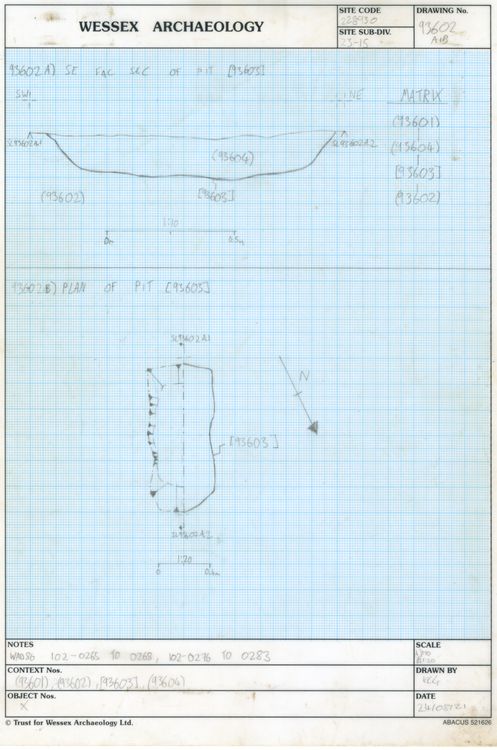 WESSEX ARCHAEOLOGY
SITE CODE
228930
SITE SUB-DIV.
23-15
DRAWING No.
93602
A+B
93602 A) SE FAC SEC OF PIT [93603]
SW
NE
MATRIX
(93601)
(93604)
[93603]
(93602)
SL93602A1
SL93602A2
(93604)
(93602)
[93603]
1:10
0m
0.5m
93602 B) PLAN OF PIT [93603]
SL93602A1
N
[93603]
SL93602A2
1:20
0
NOTES
102-0265 TO 0268, 102-0276 TO 0283
CONTEXT Nos.
(93601), (93602), [93603], (93604)
OBJECT Nos.
X
SCALE
1:10
1:20
DRAWN BY
DATE
24/08/21
© Trust for Wessex Archaeology Ltd.
ABACUS 521626